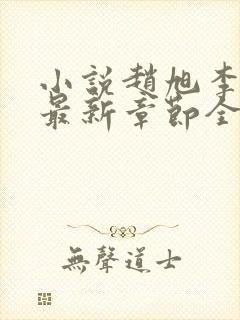 小說趙旭李
最新章節全
無聲道士